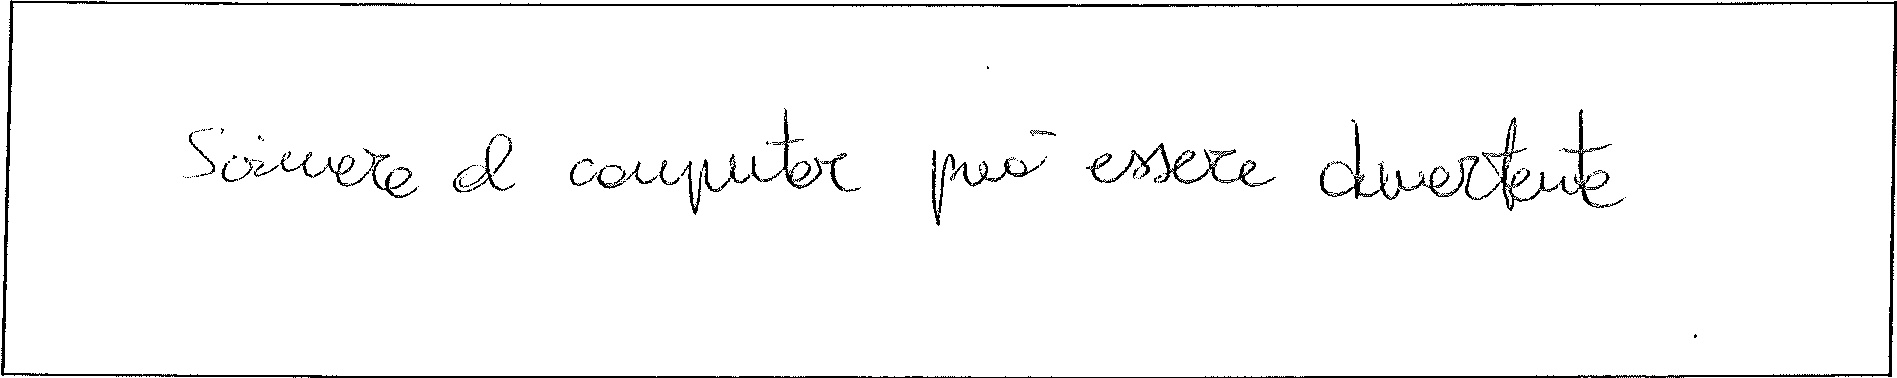 Scrivere al computer può essere divertente